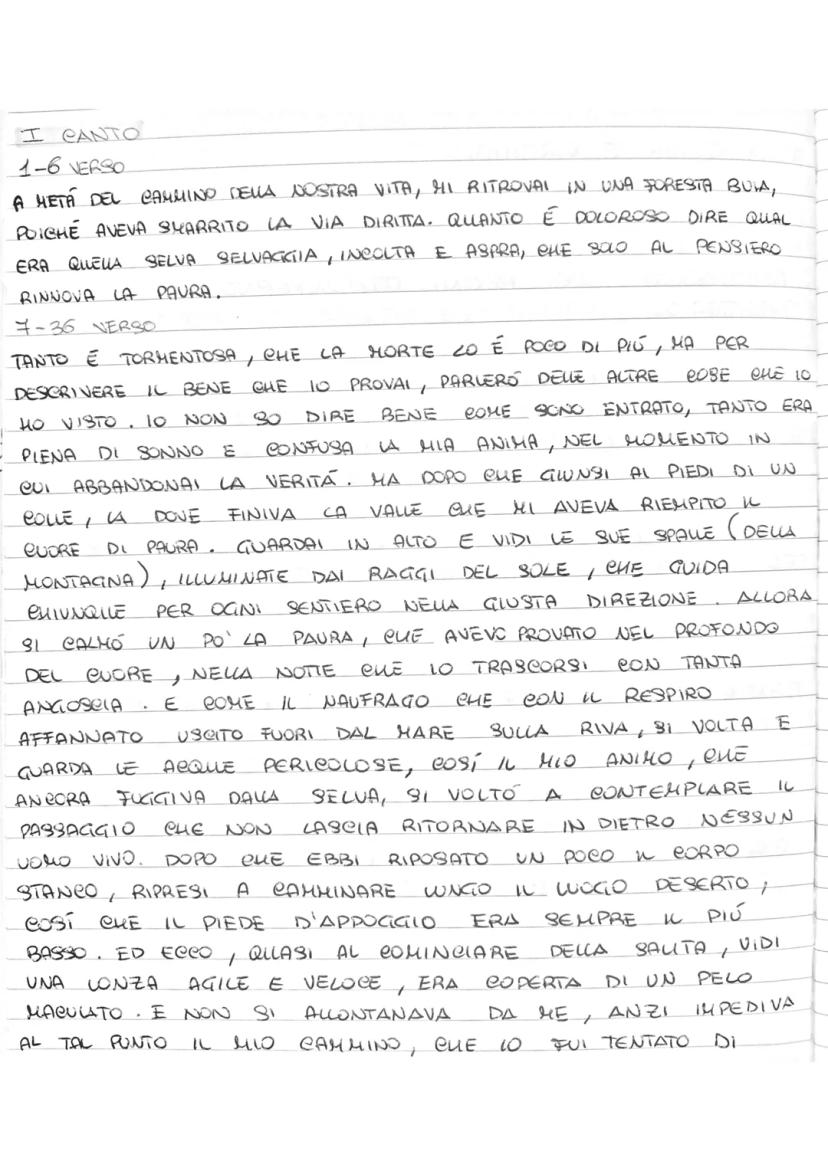 I CANTO
1-6 VERSO
A METÁ DEL CAMMINO DELLA NOSTRA VITA, MI RITROVAI IN UNA FORESTA BUIA,
POICHÉ AVEVA SMARRITO LA VIA DIRITTA. QUANTO É DOLOROSO DIRE QUAL
ERA QUELLA SELVA SELVAGGIA, INCOLTA E ASPRA, CHE SOLO AL PENSIERO
RINNOVA LA PAURA.
7-36 VERSO
TANTO É TORMENTOSA, CHE LA MORTE LO É POCO DI PIÚ, MA PER
DESCRIVERE IL BENE CHE IO PROVAI, PARLERÓ DELLE ALTRE COSE CHE IO
HO VISTO. IO NON SO DIRE BENE COME SONO ENTRATO, TANTO ERA
PIENA DI SONNO E CONFUSA LA MIA ANIMA, NEL MOMENTO IN
CUI ABBANDONAI LA VERITÁ. MA DOPO CHE GIUNSI AI PIEDI DI UN
COLLE, LA DOVE FINIVA LA VALLE CHE MI AVEVA RIEMPITO IL
CUORE DI PAURA. GUARDAI IN ALTO E VIDI LE SUE SPALLE (DELLA
MONTAGNA), ILLUMINATE DAI RAGGI DEL SOLE, CHE GUIDA
CHIUNQUE PER OGNI SENTIERO NELLA GIUSTA DIREZIONE. ALLORA
SI CALMÓ UN PO' LA PAURA, CHE AVEVO PROVATO NEL PROFONDO
DEL CUORE, NELLA NOTTE CHE IO TRASCORSI CON TANTA
ANGOSCIA. E COME IL NAUFRAGO CHE CON IL RESPIRO
AFFANNATO USCITO FUORI DAL MARE SULLA RIVA, SI VOLTA E
GUARDA LE ACQUE PERICOLOSE, COSÍ IL MIO ANIMO, CHE
ANCORA FUGGIVA DALLA SELVA, SI VOLTÓ A CONTEMPLARE IL
PASSAGGIO CHE NON LASCIA RITORNARE IN DIETRO NESSUN
UOMO VIVO. DOPO CHE EBBI RIPOSATO UN POCO IL CORPO
STANCO, RIPRESI A CAMMINARE LUNGO IL LUOGO DESERTO;
COSÍ CHE IL PIEDE D'APPOGGIO ERA SEMPRE IL PIÚ
BASSO. ED ECCO, QUASI AL COMINCIARE DELLA SALITA, VIDI
UNA LONZA AGILE E VELOCE, ERA COPERTA DI UN PELO
MACULATO. E NON SI ALLONTANAVA DA ME, ANZI IMPEDIVA
AL TAL PUNTO IL MIO CAMMINO, CHE IO FUI TENTATO DI